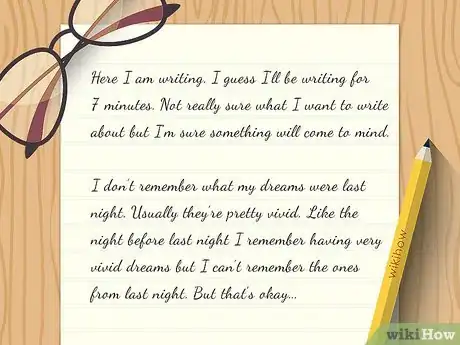 Here I am writing. I guess I'll be writing for
7 minutes. Not really sure what I want to write
about but I'm sure something will come to mind.
I don't remember what my dreams were last
night. Usually they're pretty vivid. Like the
night before last night I remember having very
vivid dreams but I can't remember the ones
from last night. But that's okay...
wikihow
wikiHow